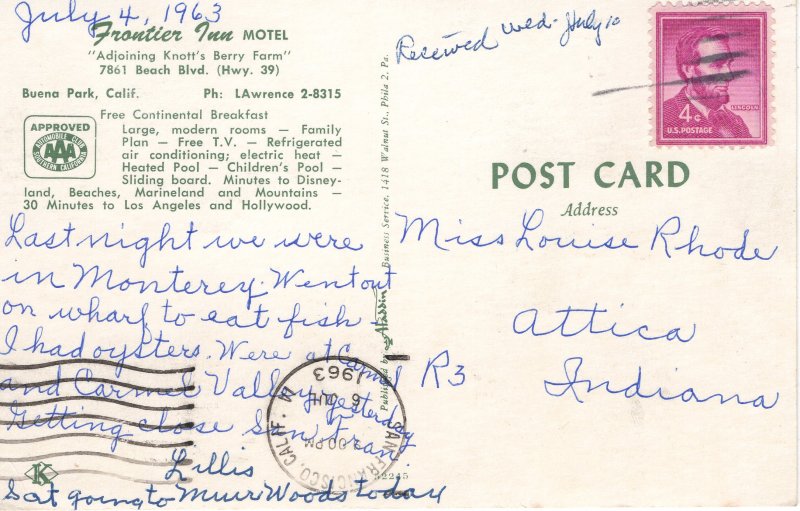 July 4, 1963
Frontier Inn MOTEL
"Adjoining Knott's Berry Farm"
7861 Beach Blvd. (Hwy. 39)
Buena Park, Calif. Ph: LAwrence 2-8315
Free Continental Breakfast
APPROVED
AUTOMOBILE CLUB
AAA
SOUTHERN CALIFORNIA
Large, modern rooms — Family
Plan — Free T.V. — Refrigerated
air conditioning; electric heat —
Heated Pool — Children's Pool —
Sliding board. Minutes to Disney-
land, Beaches, Marineland and Mountains —
30 Minutes to Los Angeles and Hollywood.
Last night we were
in Monterey. Went out
on wharf to eat fish -
I had oysters. Were at Carmel
and Carmel Valley yesterday
Getting close San Fran.
Lillis
Sat going to Muir Woods today
K
Published by Aladdin Business Service, 1418 Walnut St., Phila 2, Pa.
52245
SAN FRANCISCO, CALIF.
PM
6
1963
Received Wed. July 10
4¢
LINCOLN
U.S. POSTAGE
POST CARD
Address
Miss Louise Rhode
Attica
R3 Indiana